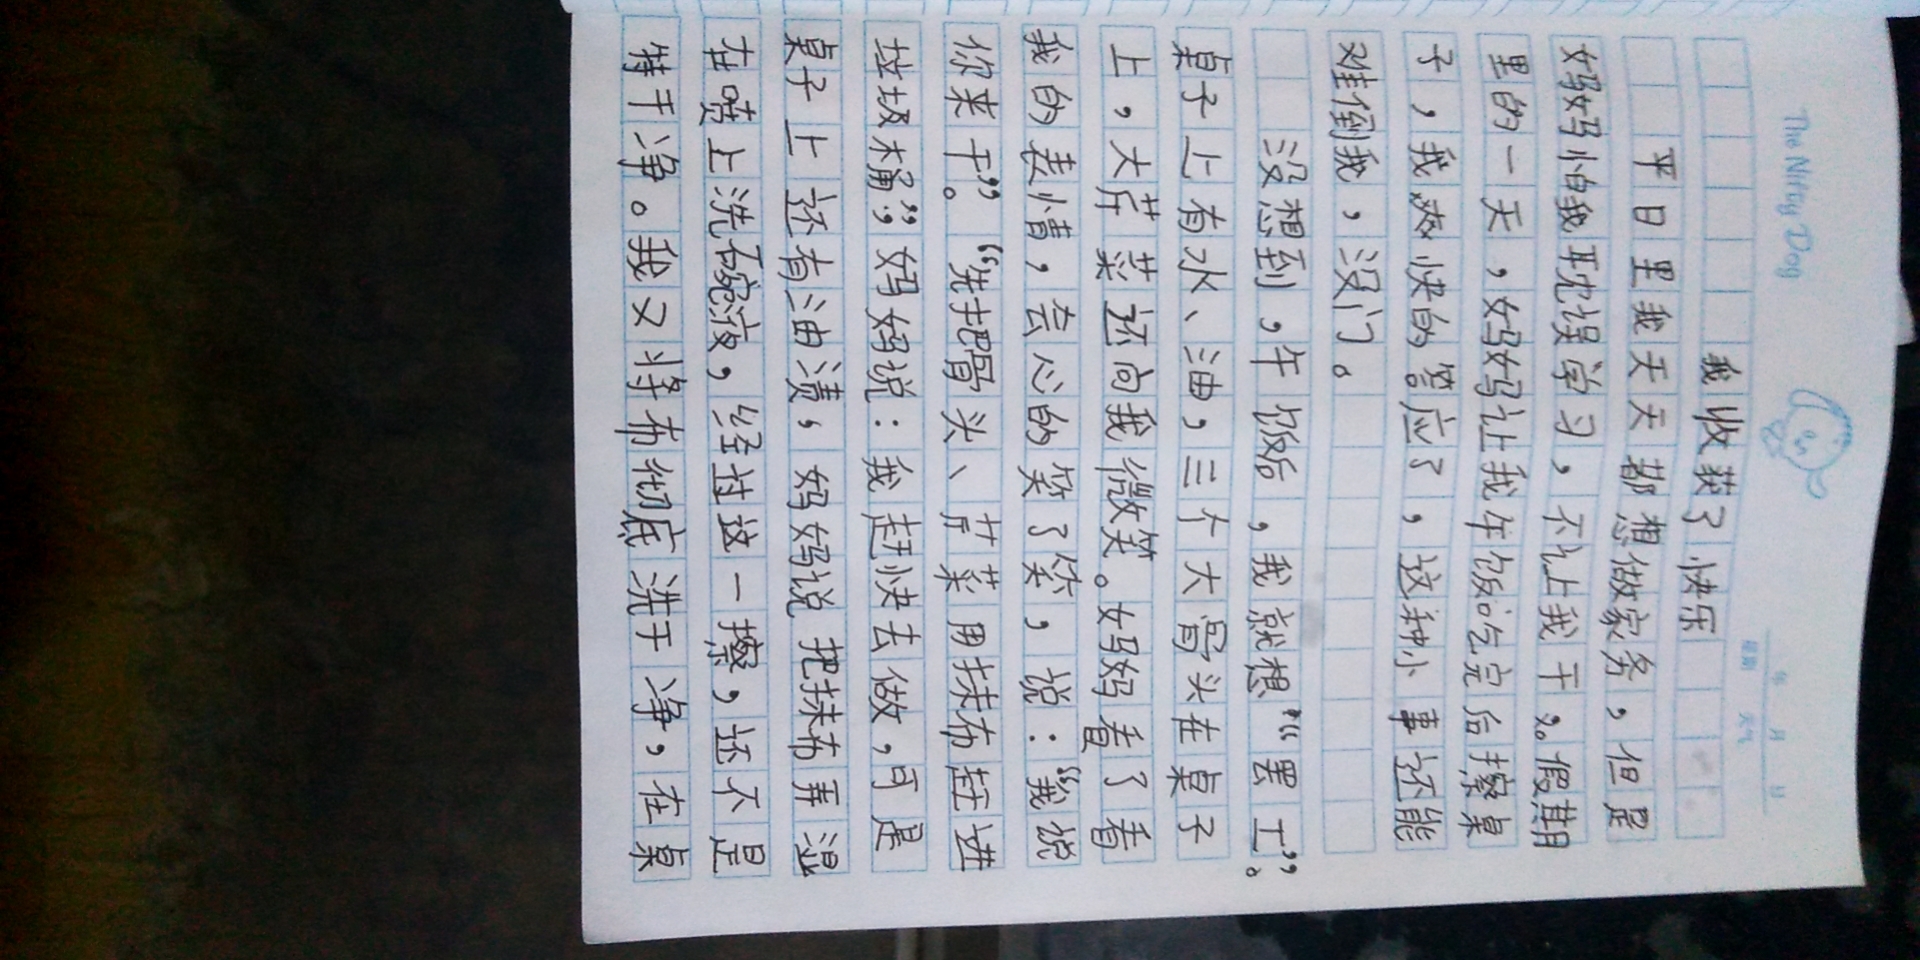 The Nifty Dog
年 月 日
星期 天气
我收获了快乐
平日里我天天都想做家务，但是
妈妈怕我耽误学习，不让我干。假期
里的一天，妈妈让我午饭吃完后擦桌
子，我爽快的答应了，这种小事还能
难倒我，没门。
没想到，午饭后，我就想“罢工”。
桌子上有水、油，三个大骨头在桌子
上，大芹菜还向我微笑。妈妈看了看
我的表情，会心的笑了笑，说：“我说
你来干”。“先把骨头、芹菜用抹布赶进
垃圾桶”，妈妈说：我赶快去做，可是
桌子上还有油渍，妈妈说把抹布弄湿
在喷上洗碗液，经过这一擦，还不是
特干净。我又将布彻底洗干净，在桌